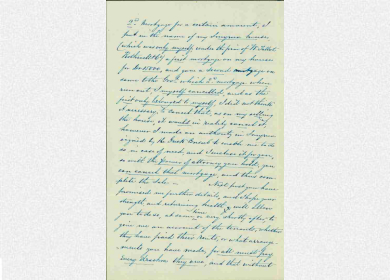 2nd Mortgage for a certain amount, I
put in the name of my Smyrna house
(which was only myself under the firm of
a first mortgage on my house
for and gave a second mortgage on
same to the which 2d mortgage, when
run out, I myself cancelled, and as the
first only belonged to myself, I did not think
it necessary to cancel that, as on my selling
the house, it would in reality cancel it,
however I made an authority in Smyrna
signed by the Consul to enable me to do
so in case of need, and I enclose it for you,
as with the Power of attorney you hold, you
can cancel that mortgage, and then com-
plete the Sale. — Next post you have
promised me further details, and I hope your
strength and returning health, will allow
you to do so, at same time or very shortly after, to
give me an account of the tenants, whether
they have paid their rents, or what arrange-
ments you have made, for all must pay
every they owe, and that without